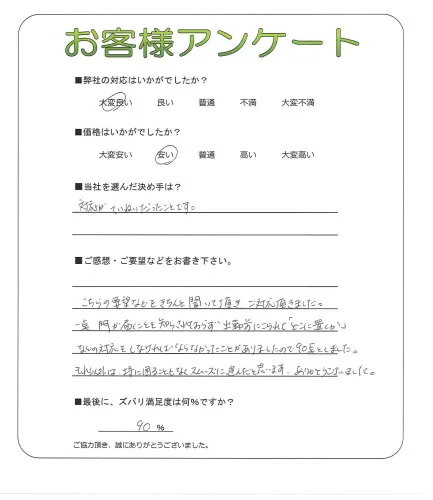 お客様アンケート
■弊社の対応はいかがでしたか？
大変良い 良い 普通 不満 大変不満
■価格はいかがでしたか？
大変安い 安い 普通 高い 大変高い
■当社を選んだ決め手は？
対応がていねいだったことです。
■ご感想・ご要望などをお書き下さい。
こちらの要望などをきちんと聞いて頂き ご対応頂きました。
一点 門が届くことを知らされておらず 出勤前にこられて「どこに置くか」
などの対応をしなければならなかったことがありましたので90点としました。
それ以外は 特に困ることもなくスムーズに進んだと思います. ありがとうございました。
■最後に、ズバリ満足度は何％ですか？
90 %
ご協力頂き、誠にありがとうございました。